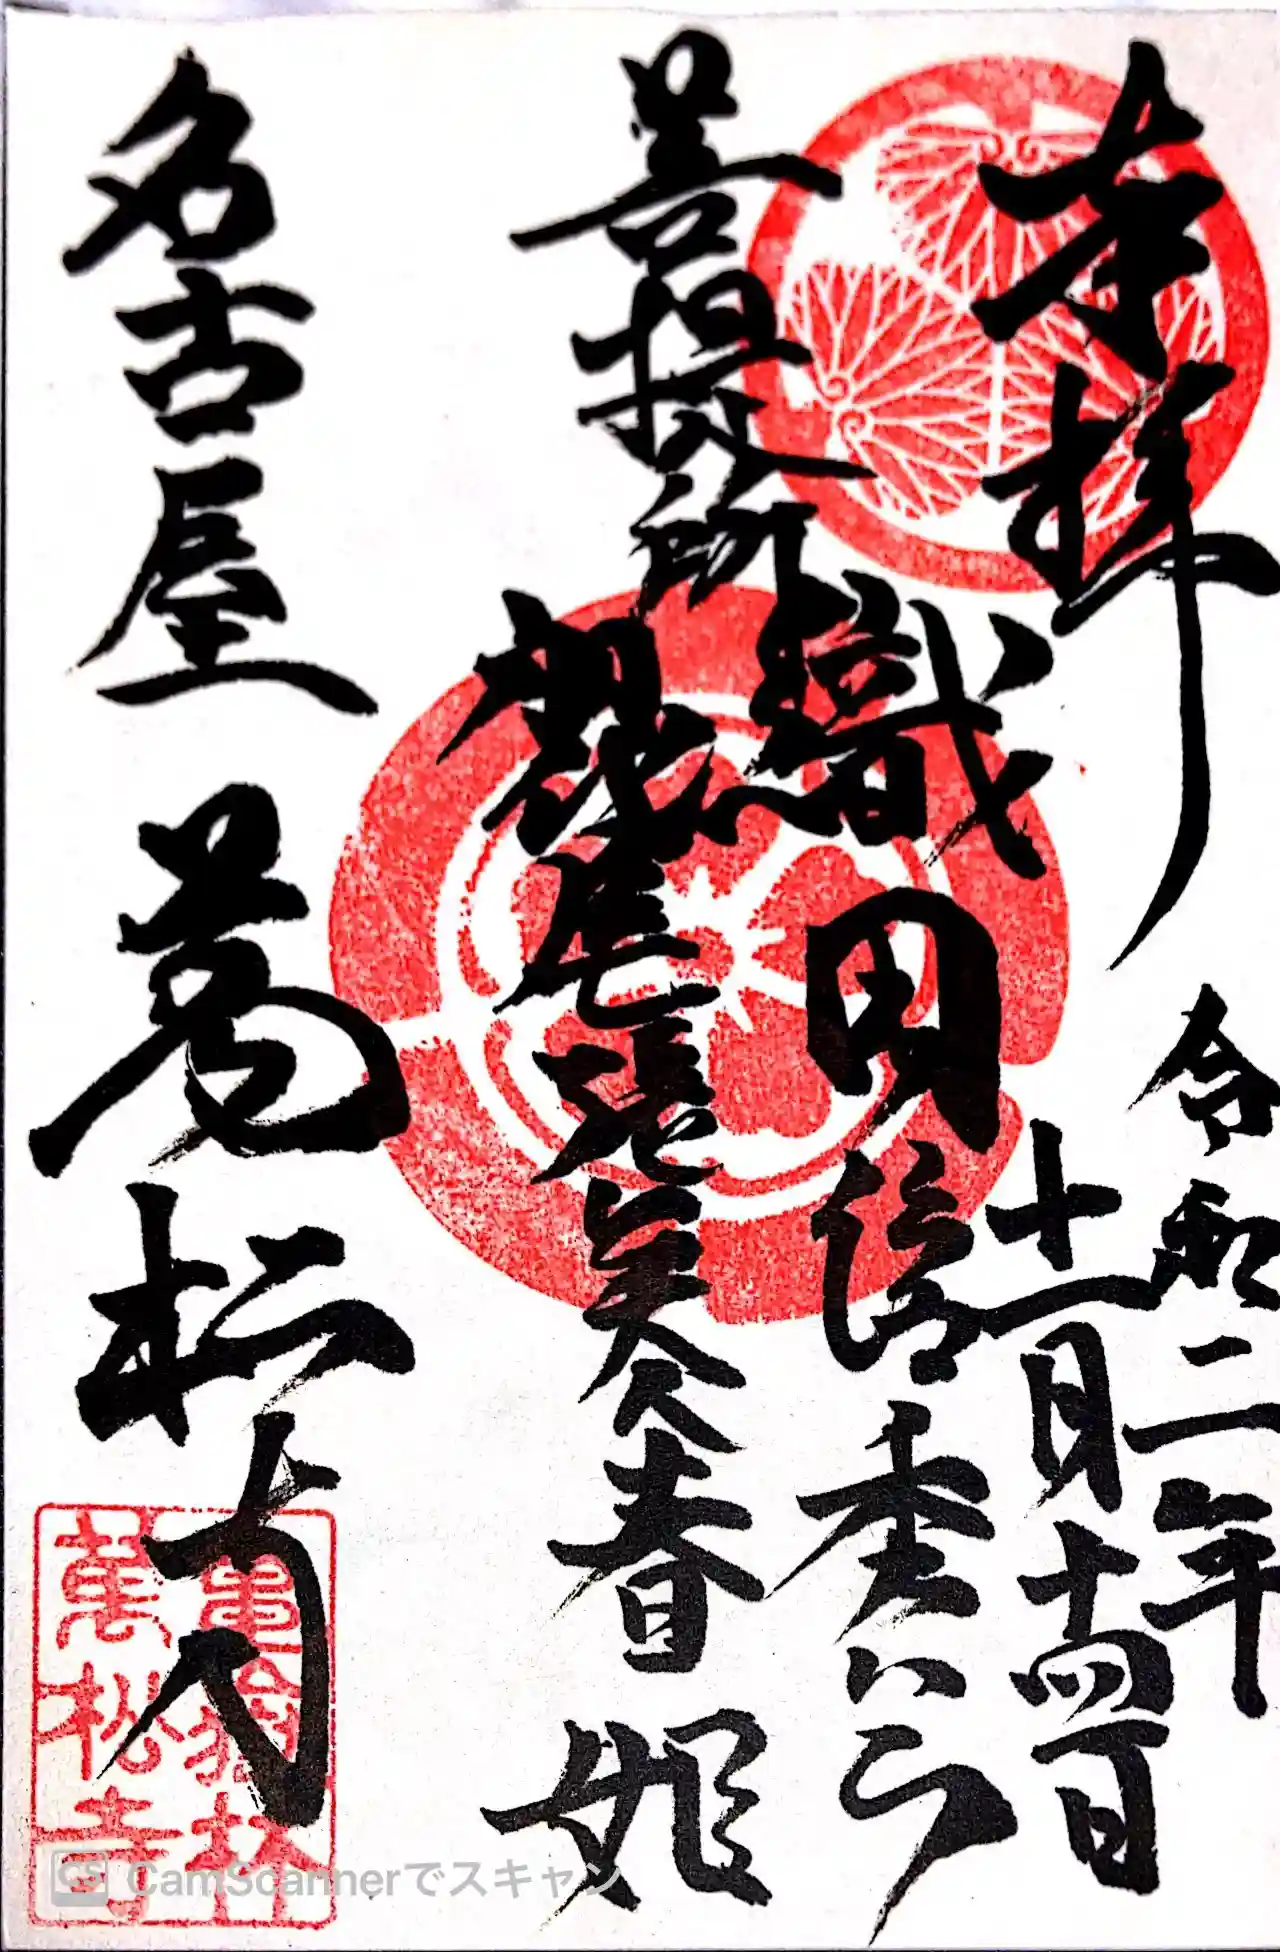 奉拝
令和二年
十一月十四日
菩提所
織田信秀公
尾張
春姫
名古屋 萬松寺
萬松寺
CamScannerでスキャン